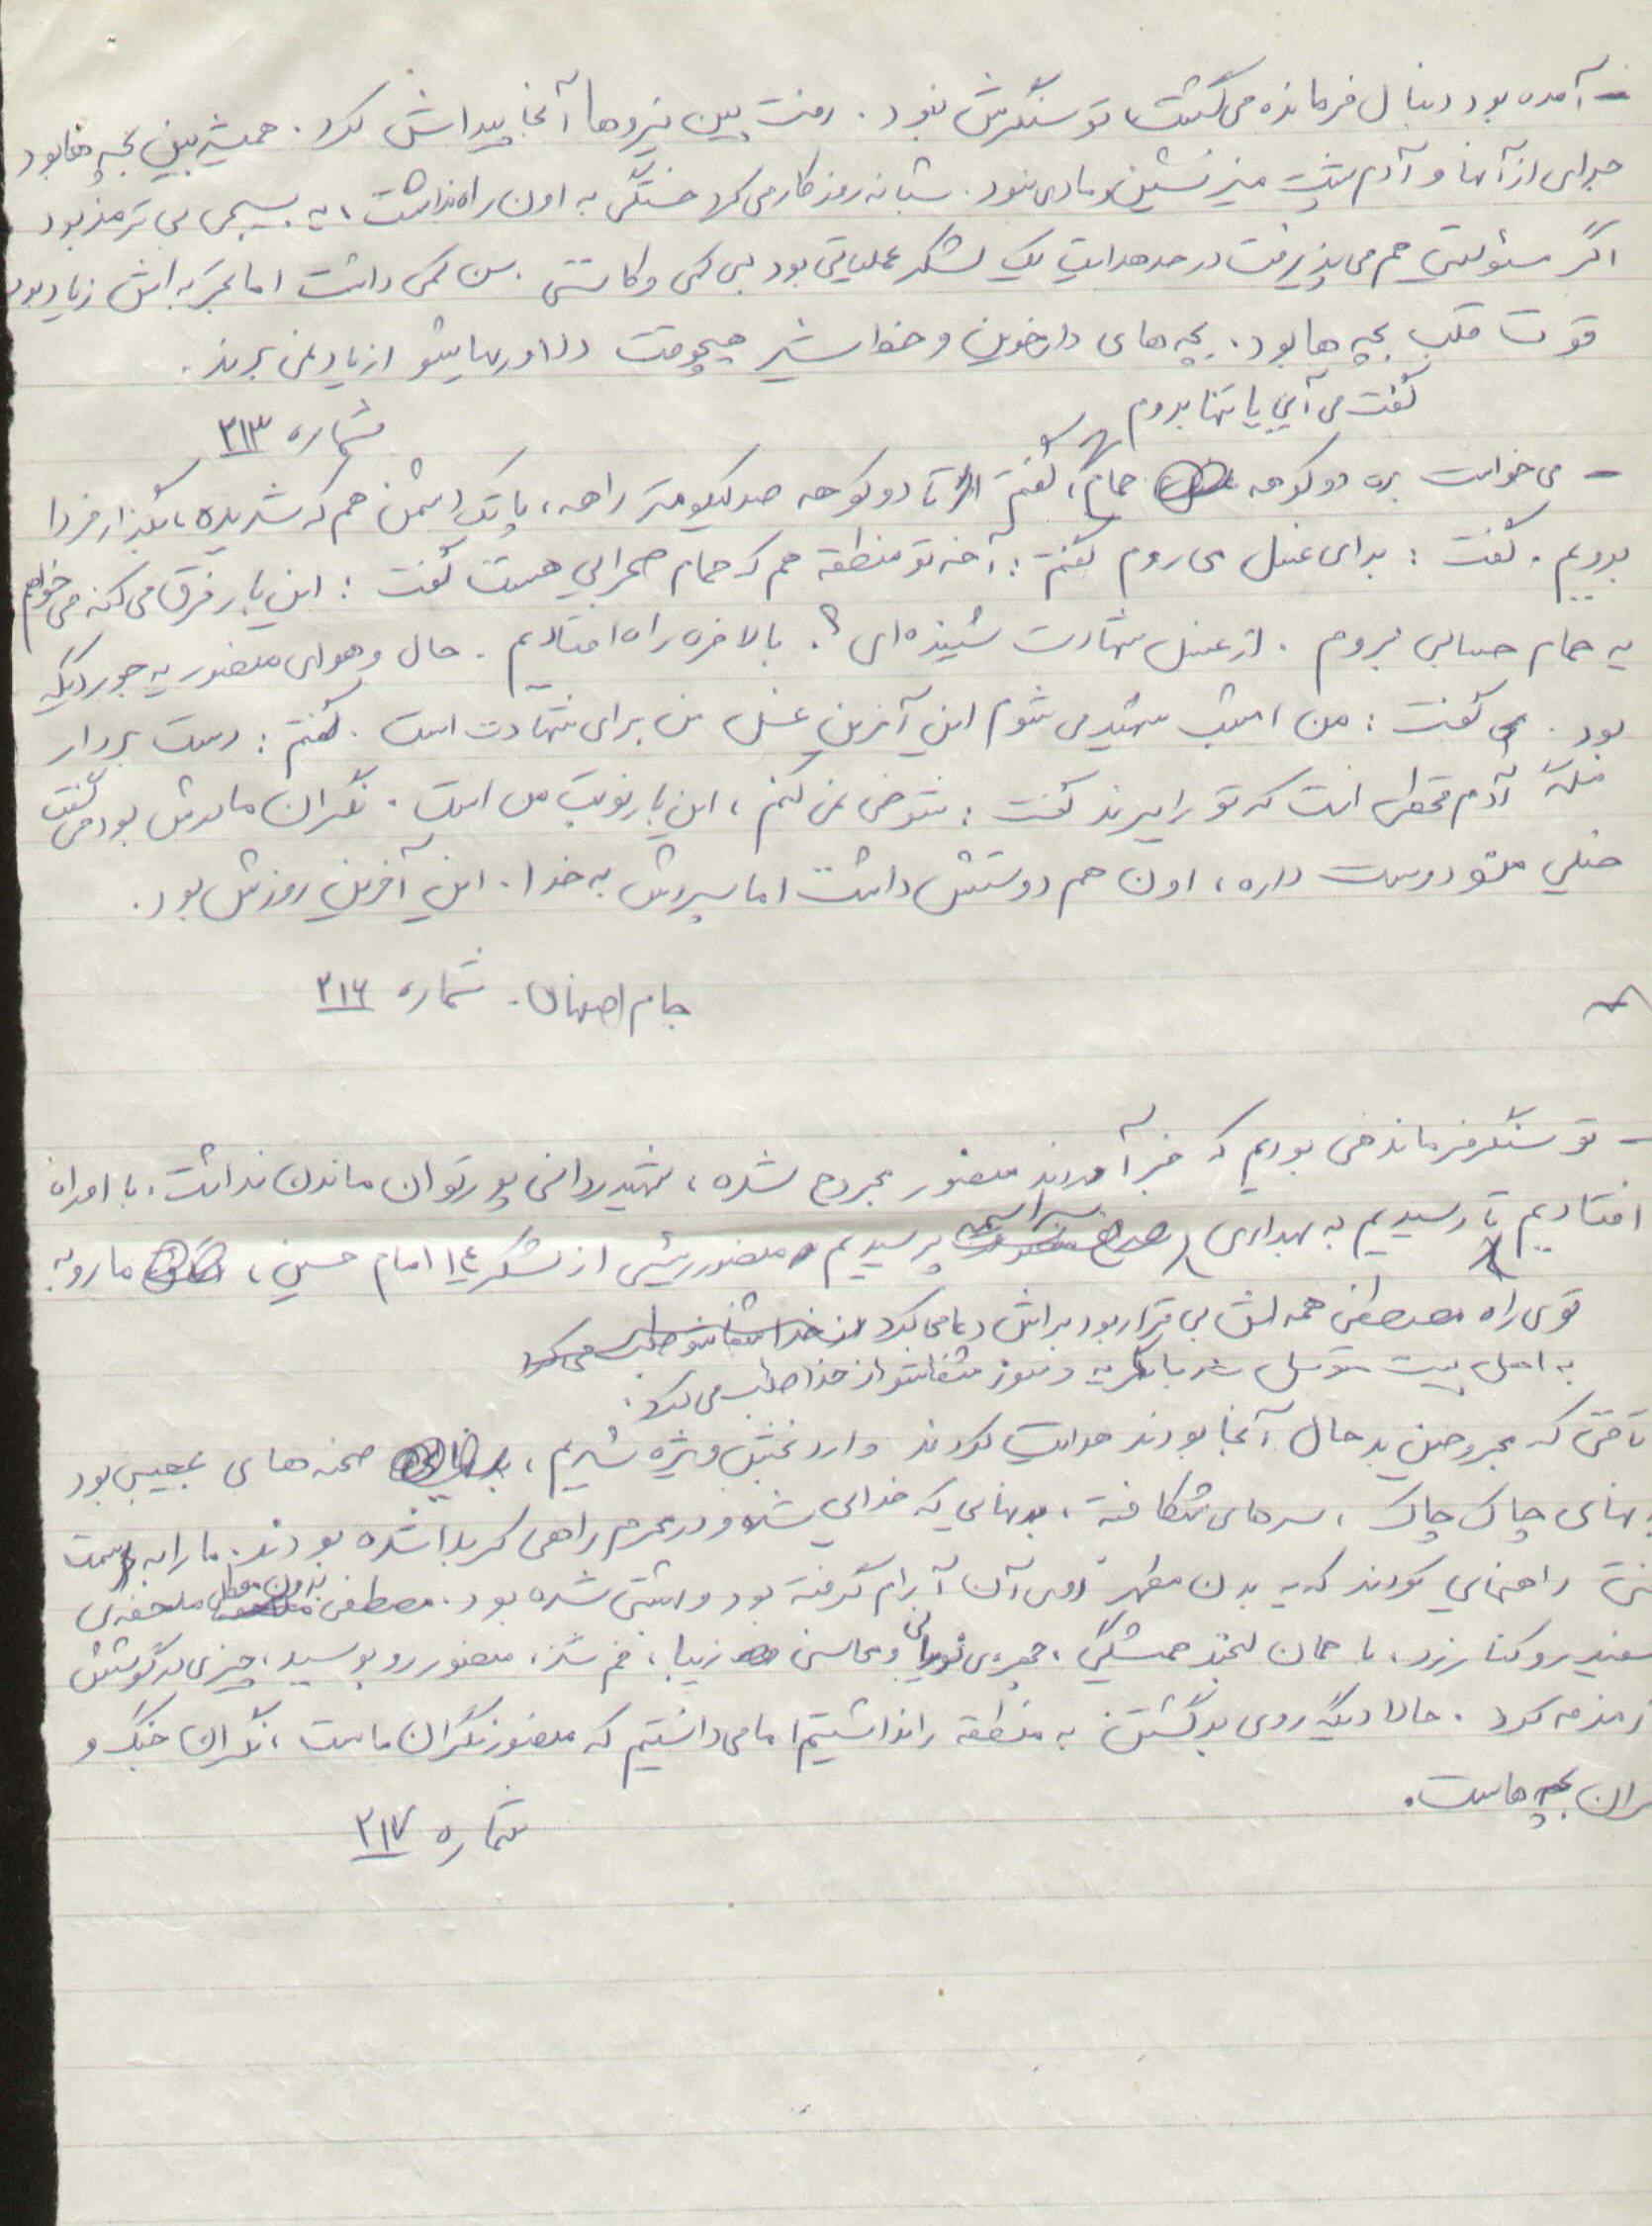 - آمده بود دنبال فرمانده می گشت، تو سنگرش نبود. رفت بین نیروها آنجا پیداش کرد. همیشه بین بچه ها بود
جدای از آنها و آدم پشت میز نشین و مادی نبود. شبانه روز کار می کرد خستگی به اون راه نداشت، یه بسیجی بی ترمز بود
اگر مسئولیتی هم می پذیرفت در حد هدایت یک لشکر عملیاتی بود بی کمی و کاستی. سن کمی داشت اما تجربه اش زیاد بود
قوت قلب بچه ها بود. بچه های دارخوین و خط شیر هیچوقت دلاوریهایشو از یاد نمی برند.
گفت می آیی یا تنها بروم
شماره ۲۱۳
- می خواست بره دو کوهه حمام، گفتم تا دو کوهه صد کیلومتر راهه، پاتک دشمن هم که شدیده، بگذار فردا
برویم. گفت: برای غسل می روم گفتم: آخه تو منطقه هم که حمام صحرایی هست گفت: این بار فرق می کنه می خواهم
یه حمام حسابی بروم. از غسل شهادت شنیده ای؟. بالاخره راه افتادیم. حال و هوای منصور یه جور دیگه
بود. گفت: من امشب شهید می شوم این آخرین غسل من برای شهادت است. گفتم: دست بردار
مگه آدم قحطی است که تو را ببرند گفت: شوخی نمی کنم، این بار نوبت من است. نگران مادرش بود می گفت
خیلی منو دوست داره، اون هم دوستش داشت اما سپردش به خدا. این آخرین روزش بود.
جام اصفهان. شماره ۲۱۶
- تو سنگر فرماندهی بودیم که خبر آوردند منصور مجروح شده، شهید ردانی پور توان ماندن نداشت، با او راه
افتادیم تا رسیدیم به بهداری سراسیمه پرسیدیم منصور رئیسی از لشکر ۱۴ امام حسین، ما رو به
توی راه مصطفی همه اش بی قرار بود براش دعا می کرد از خدا شفاشو طلب می کرد
به اهل بیت متوسل شد با گریه و سوز شفاشو از خدا طلب می کرد.
اتاقی که مجروحین بد حال آنجا بودند هدایت کردند وارد بخش ویژه شدیم، صحنه های عجیبی بود
بدنهای چاک چاک، سرهای شکافته، بدنهایی که خدایی شده و در محرم راهی کربلا شده بودند. ما را به سمت
تختی راهنمایی کردند که یه بدن مطهر روی آن آرام گرفته بود و بهشتی شده بود. مصطفی بدون معطلی ملحفه ی
سفید رو کنار زد، با همان لبخند همیشگی، چهره ی نورانی و محاسن زیبا، خم شد، منصور رو بوسید، چیزی در گوشش
زمزمه کرد. حالا دیگه روی برگشتن به منطقه را نداشتیم اما می دانستیم که منصور نگران ماست، نگران جنگ و
نگران بچه هاست.
شماره ۲۱۷